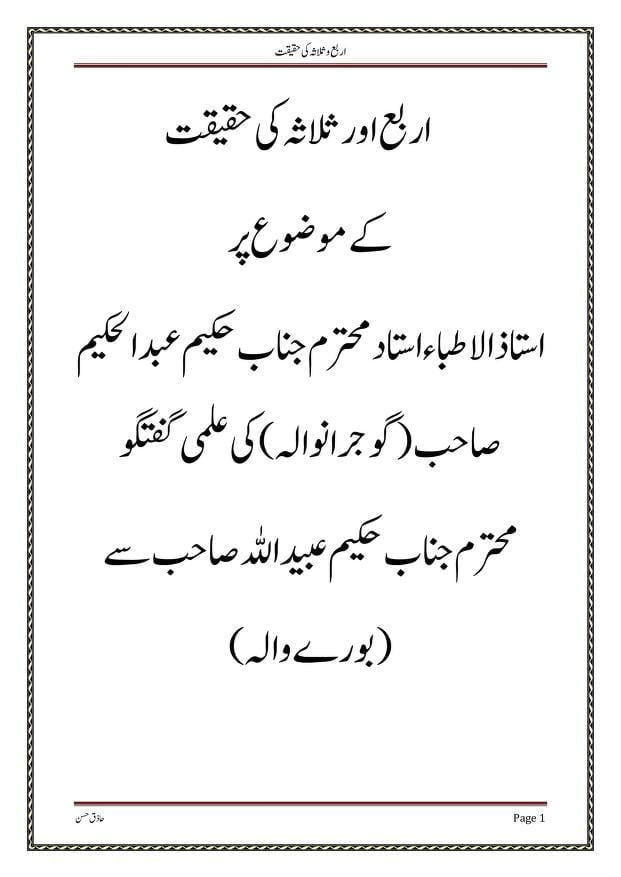 اربع و ثلاثہ کی حقیقت
اربع اور ثلاثہ کی حقیقت
کے موضوع پر
استاذ الاطباء استاد محترم جناب حکیم عبدالحکیم
صاحب (گوجرانوالہ) کی علمی گفتگو
محترم جناب حکیم عبیداللہ صاحب سے
(بورے والہ)
حاذق حسن
Page 1